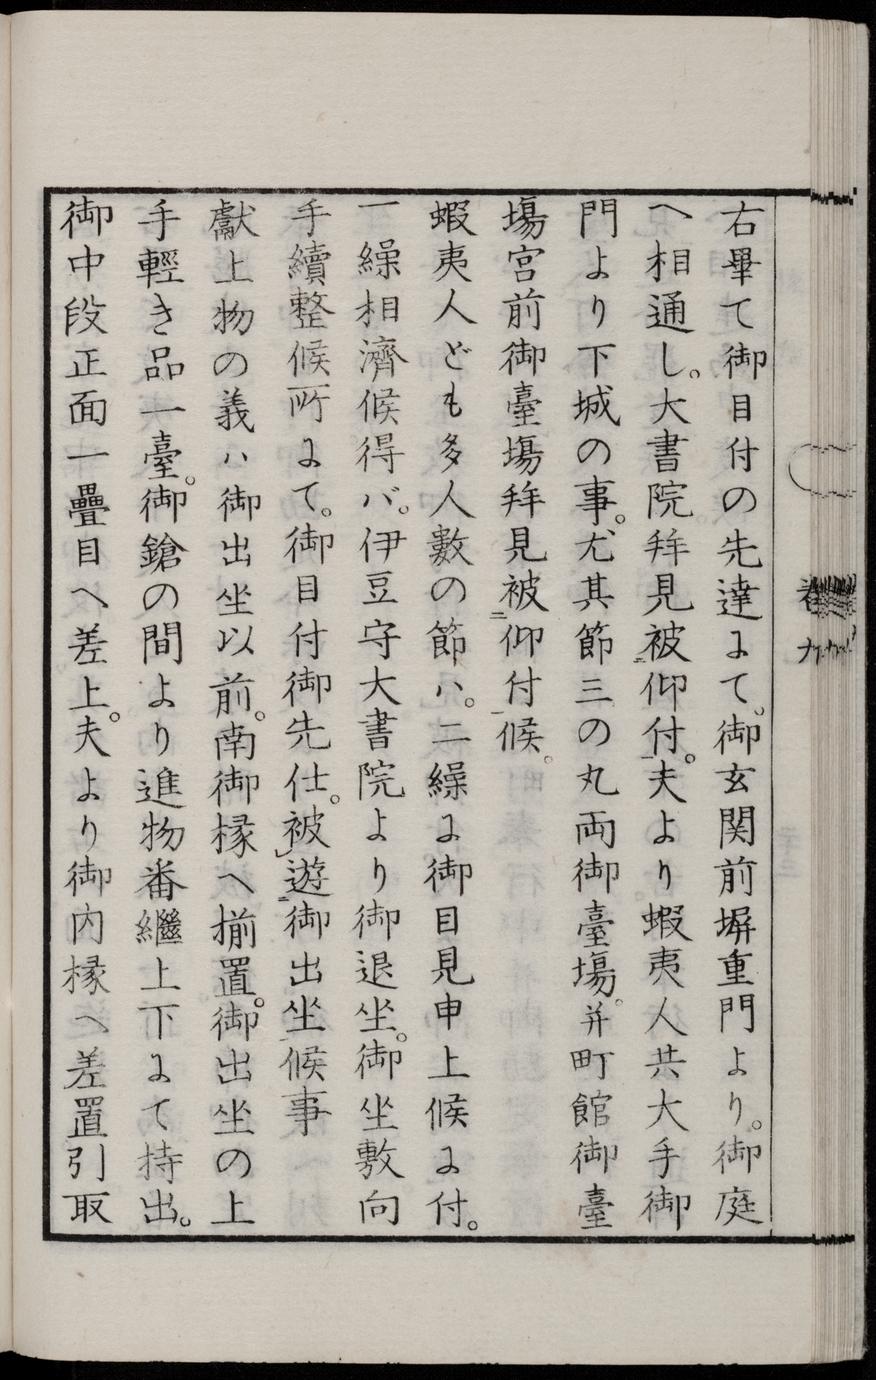 右畢て御目付の先達よて。御玄関前塀重門より。御庭
へ相通し。大書院拜見被仰付。夫より蝦夷人共大手御
門より下城の事。尤其節三の丸両御臺塲。并町館御臺
塲宮前御臺塲拜見被仰付候。
蝦夷人ども多人數の節ハ。二繰よ御目見申上候よ付。
一繰相濟候得バ。伊豆守大書院より御退坐。御坐敷向
手續整候所よて。御目付御先仕。被遊御出坐候事
獻上物の義ハ御出坐以前。南御椽へ揃置。御出坐の上
手輕き品一臺。御鎗の間より進物番繼上下よて持出。
御中段正面一疊目へ差上。夫より御内椽へ差置引取
卷九